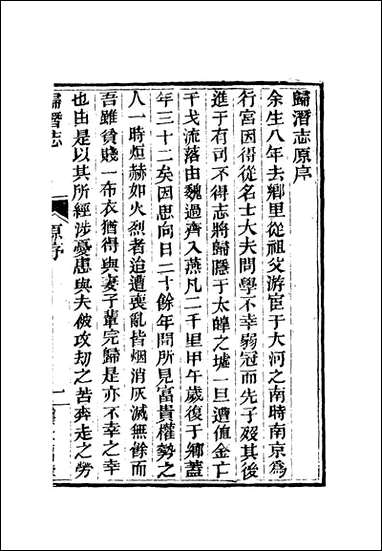 歸潛志原序
余生八年去鄉里從祖父游宦于大河之南時南京爲
行宮因得從名士大夫問學不幸弱冠而先子歿其後
進于有司不得志將歸隱于太皥之墟一旦遭值金亡
干戈流落由魏過齊入燕凡二千里甲午歲復于鄉蓋
年三十二矣因思向日二十餘年間所見富貴權勢之
人一時烜赫如火烈者迨遭喪亂皆烟消灰滅無餘而
吾雖貧賤一布衣猶得與妻子輩完歸是亦不幸之幸
也由是以其所經涉憂患與夫被攻刧之苦奔走之勞
歸潛志
原序
一